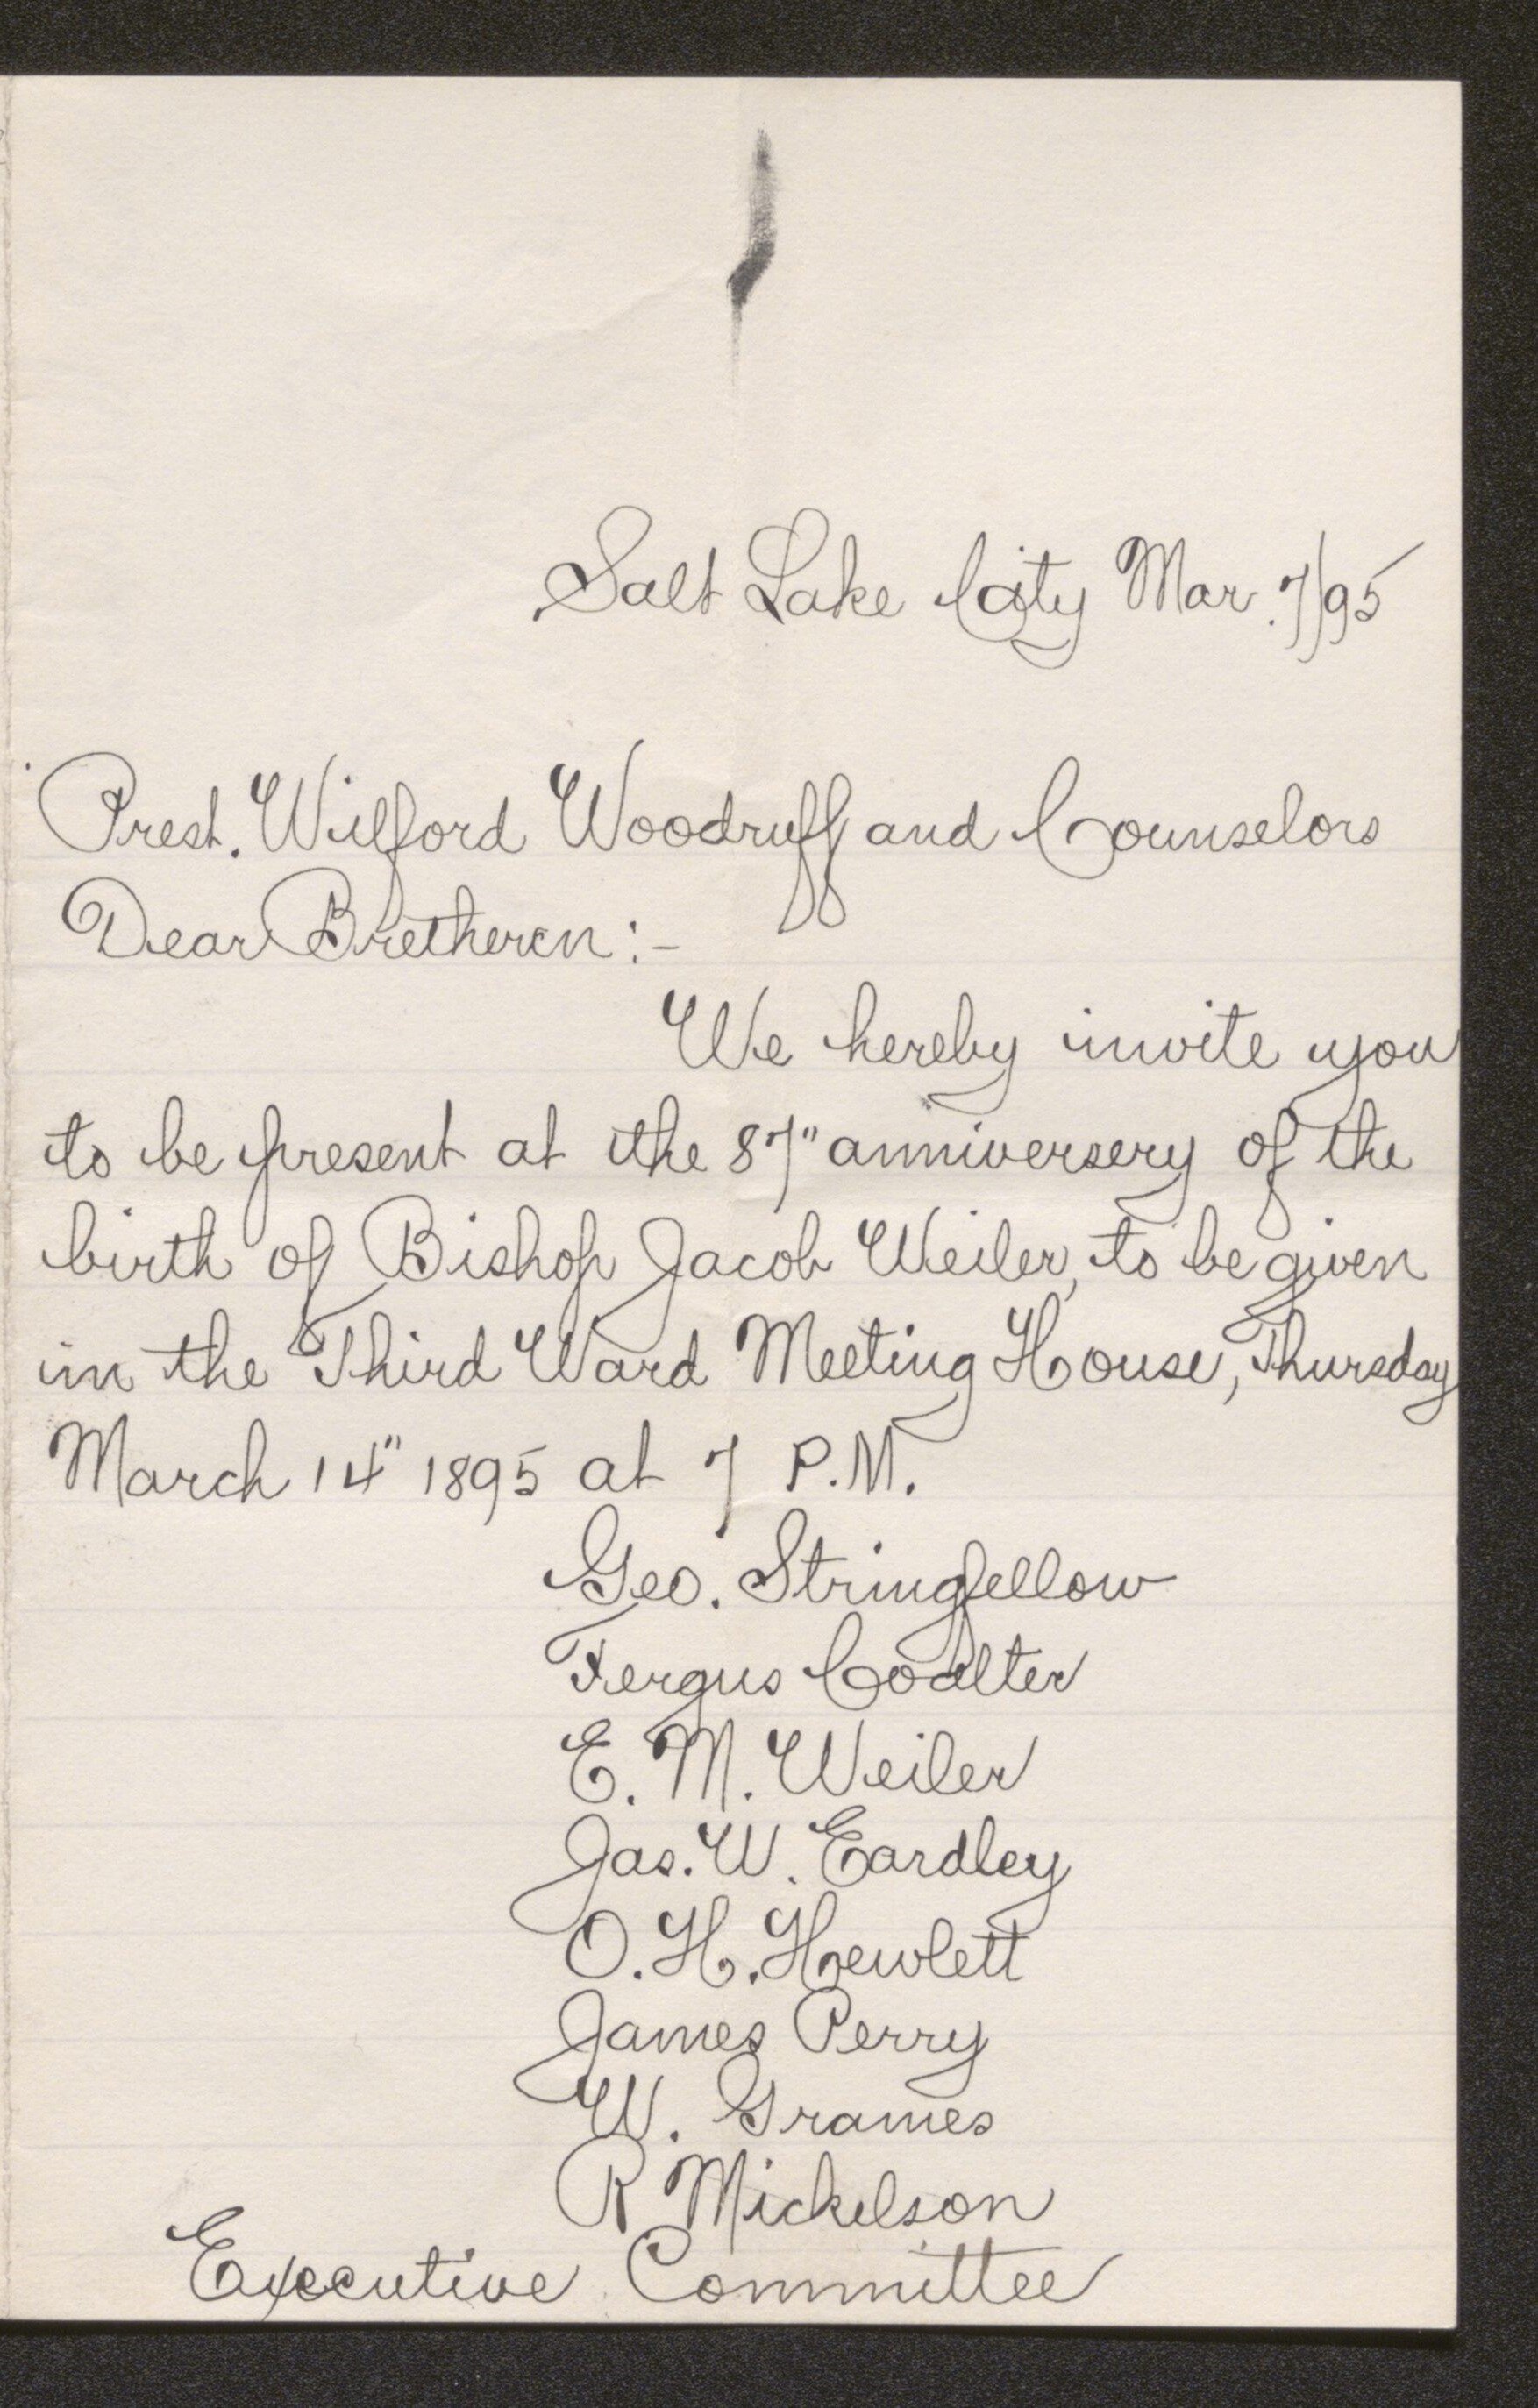 Salt Lake City Mar. 7/95
Prest. Wilford Woodruff and Counselors
Dear Bretheren:-
We hereby invite you
to be present at the 87" anniversery of the
birth of Bishop Jacob Weiler, to be given
in the Third Ward Meeting House, Thursday
March 14" 1895 at 7 P.M.
Geo. Stringfellow
Fergus Coalter
E. M. Weiler
Jas. W. Eardley
O. H. Hewlett
James Perry
W. Grames
R Mickelson
Executive Committee